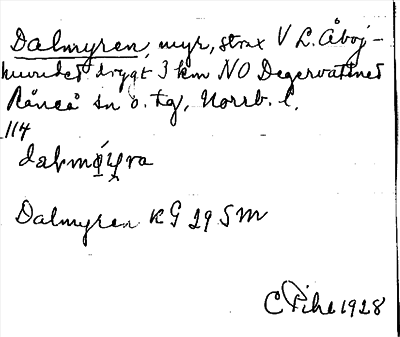 Dalmyren, myr, strax V L. Åboj-
huvudet drygt 3 km NO Degervattnet
Råneå sn o. tg, Norrb. l.
114
Dalmyren KG 29 SM
C Pihl 1928